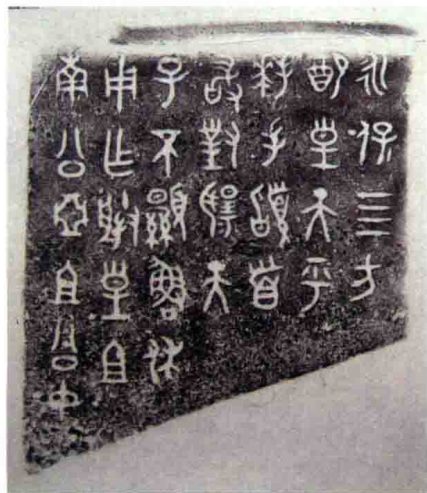 永保四方
配皇天乎
拜手䭫首
敢對揚天
子不顯魯休
用乍朕皇且
南公亞且公中